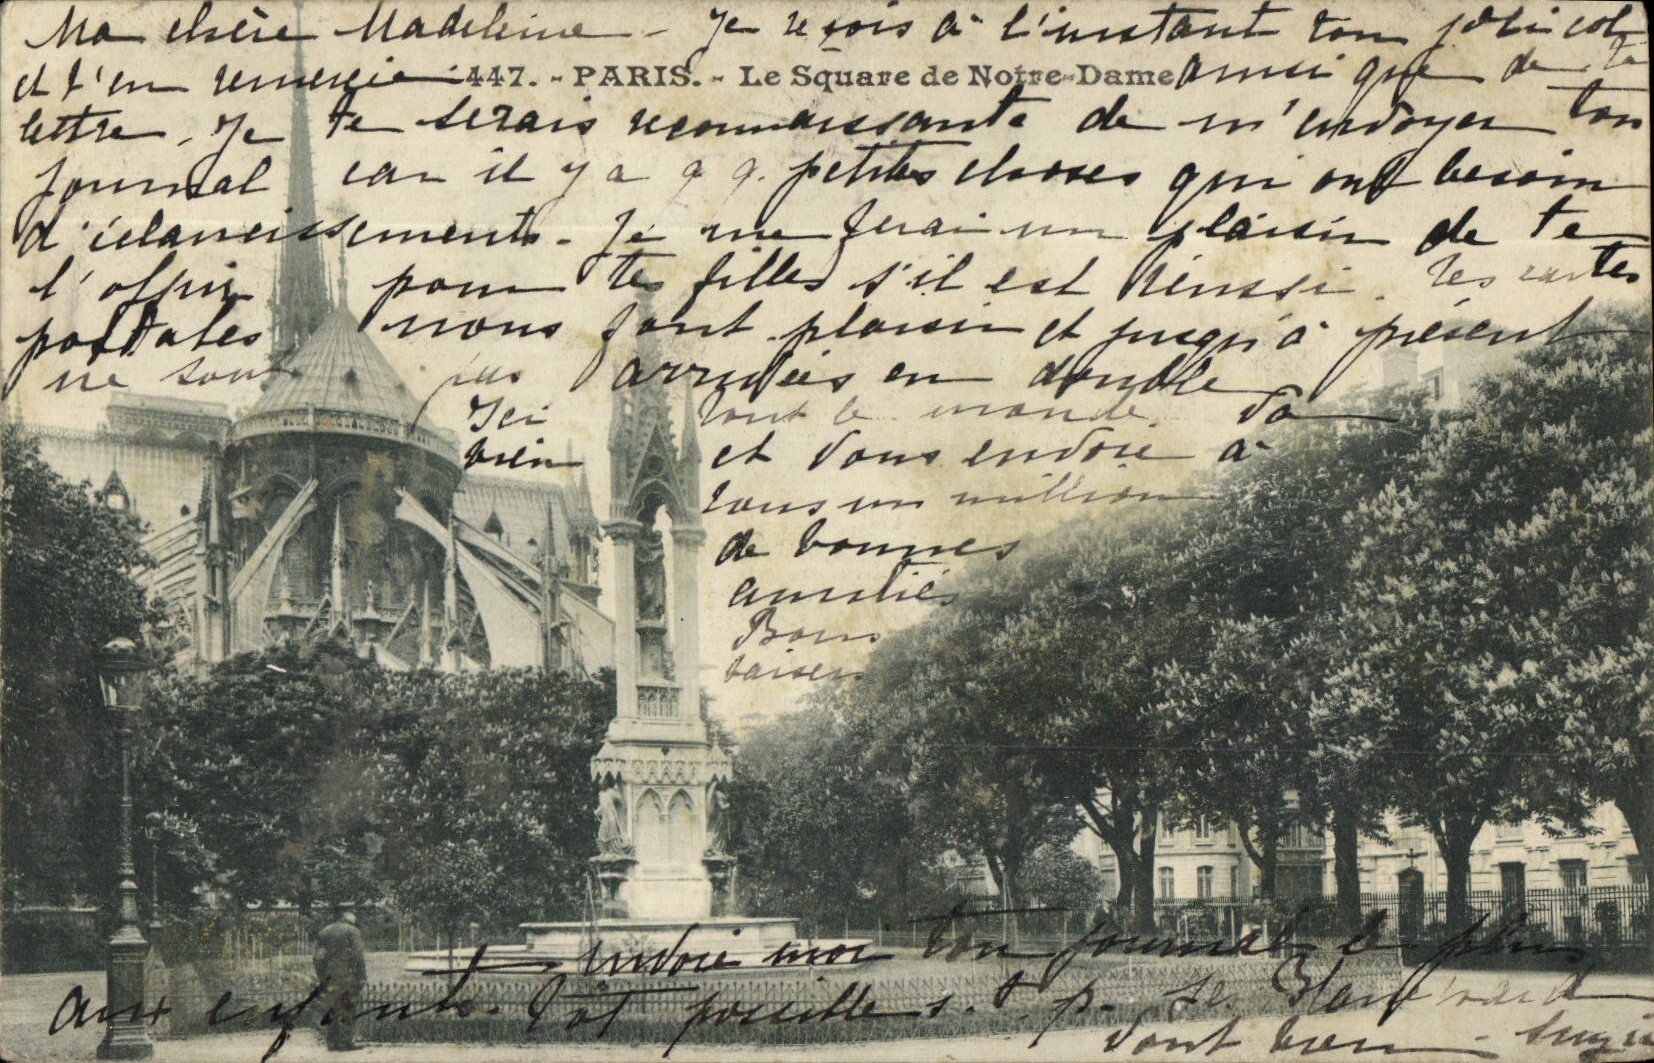 Ma chère Madeleine - Je reçois à l'instant ton joli col
et t'en remercie
447. - PARIS. - Le Square de Notre-Dame
ainsi que de ta
lettre. Je te serais reconnaissante de m'envoyer ton
journal car il y a q q. petites choses qui ont besoin
d'éclaircissements. Je me ferai un plaisir de te
l'offrir pour tes filles s'il est réussi. Tes cartes
postales nous font plaisir et jusqu'à présent
ne sont pas arrivées en double
Ici tout le monde va
bien et vous envoie à
tous un million
de bonnes
amitiés
Bons
baisers
+ envoie moi ton journal le plus
aux enfants. tôt possible s. t. p. Les
vont bien